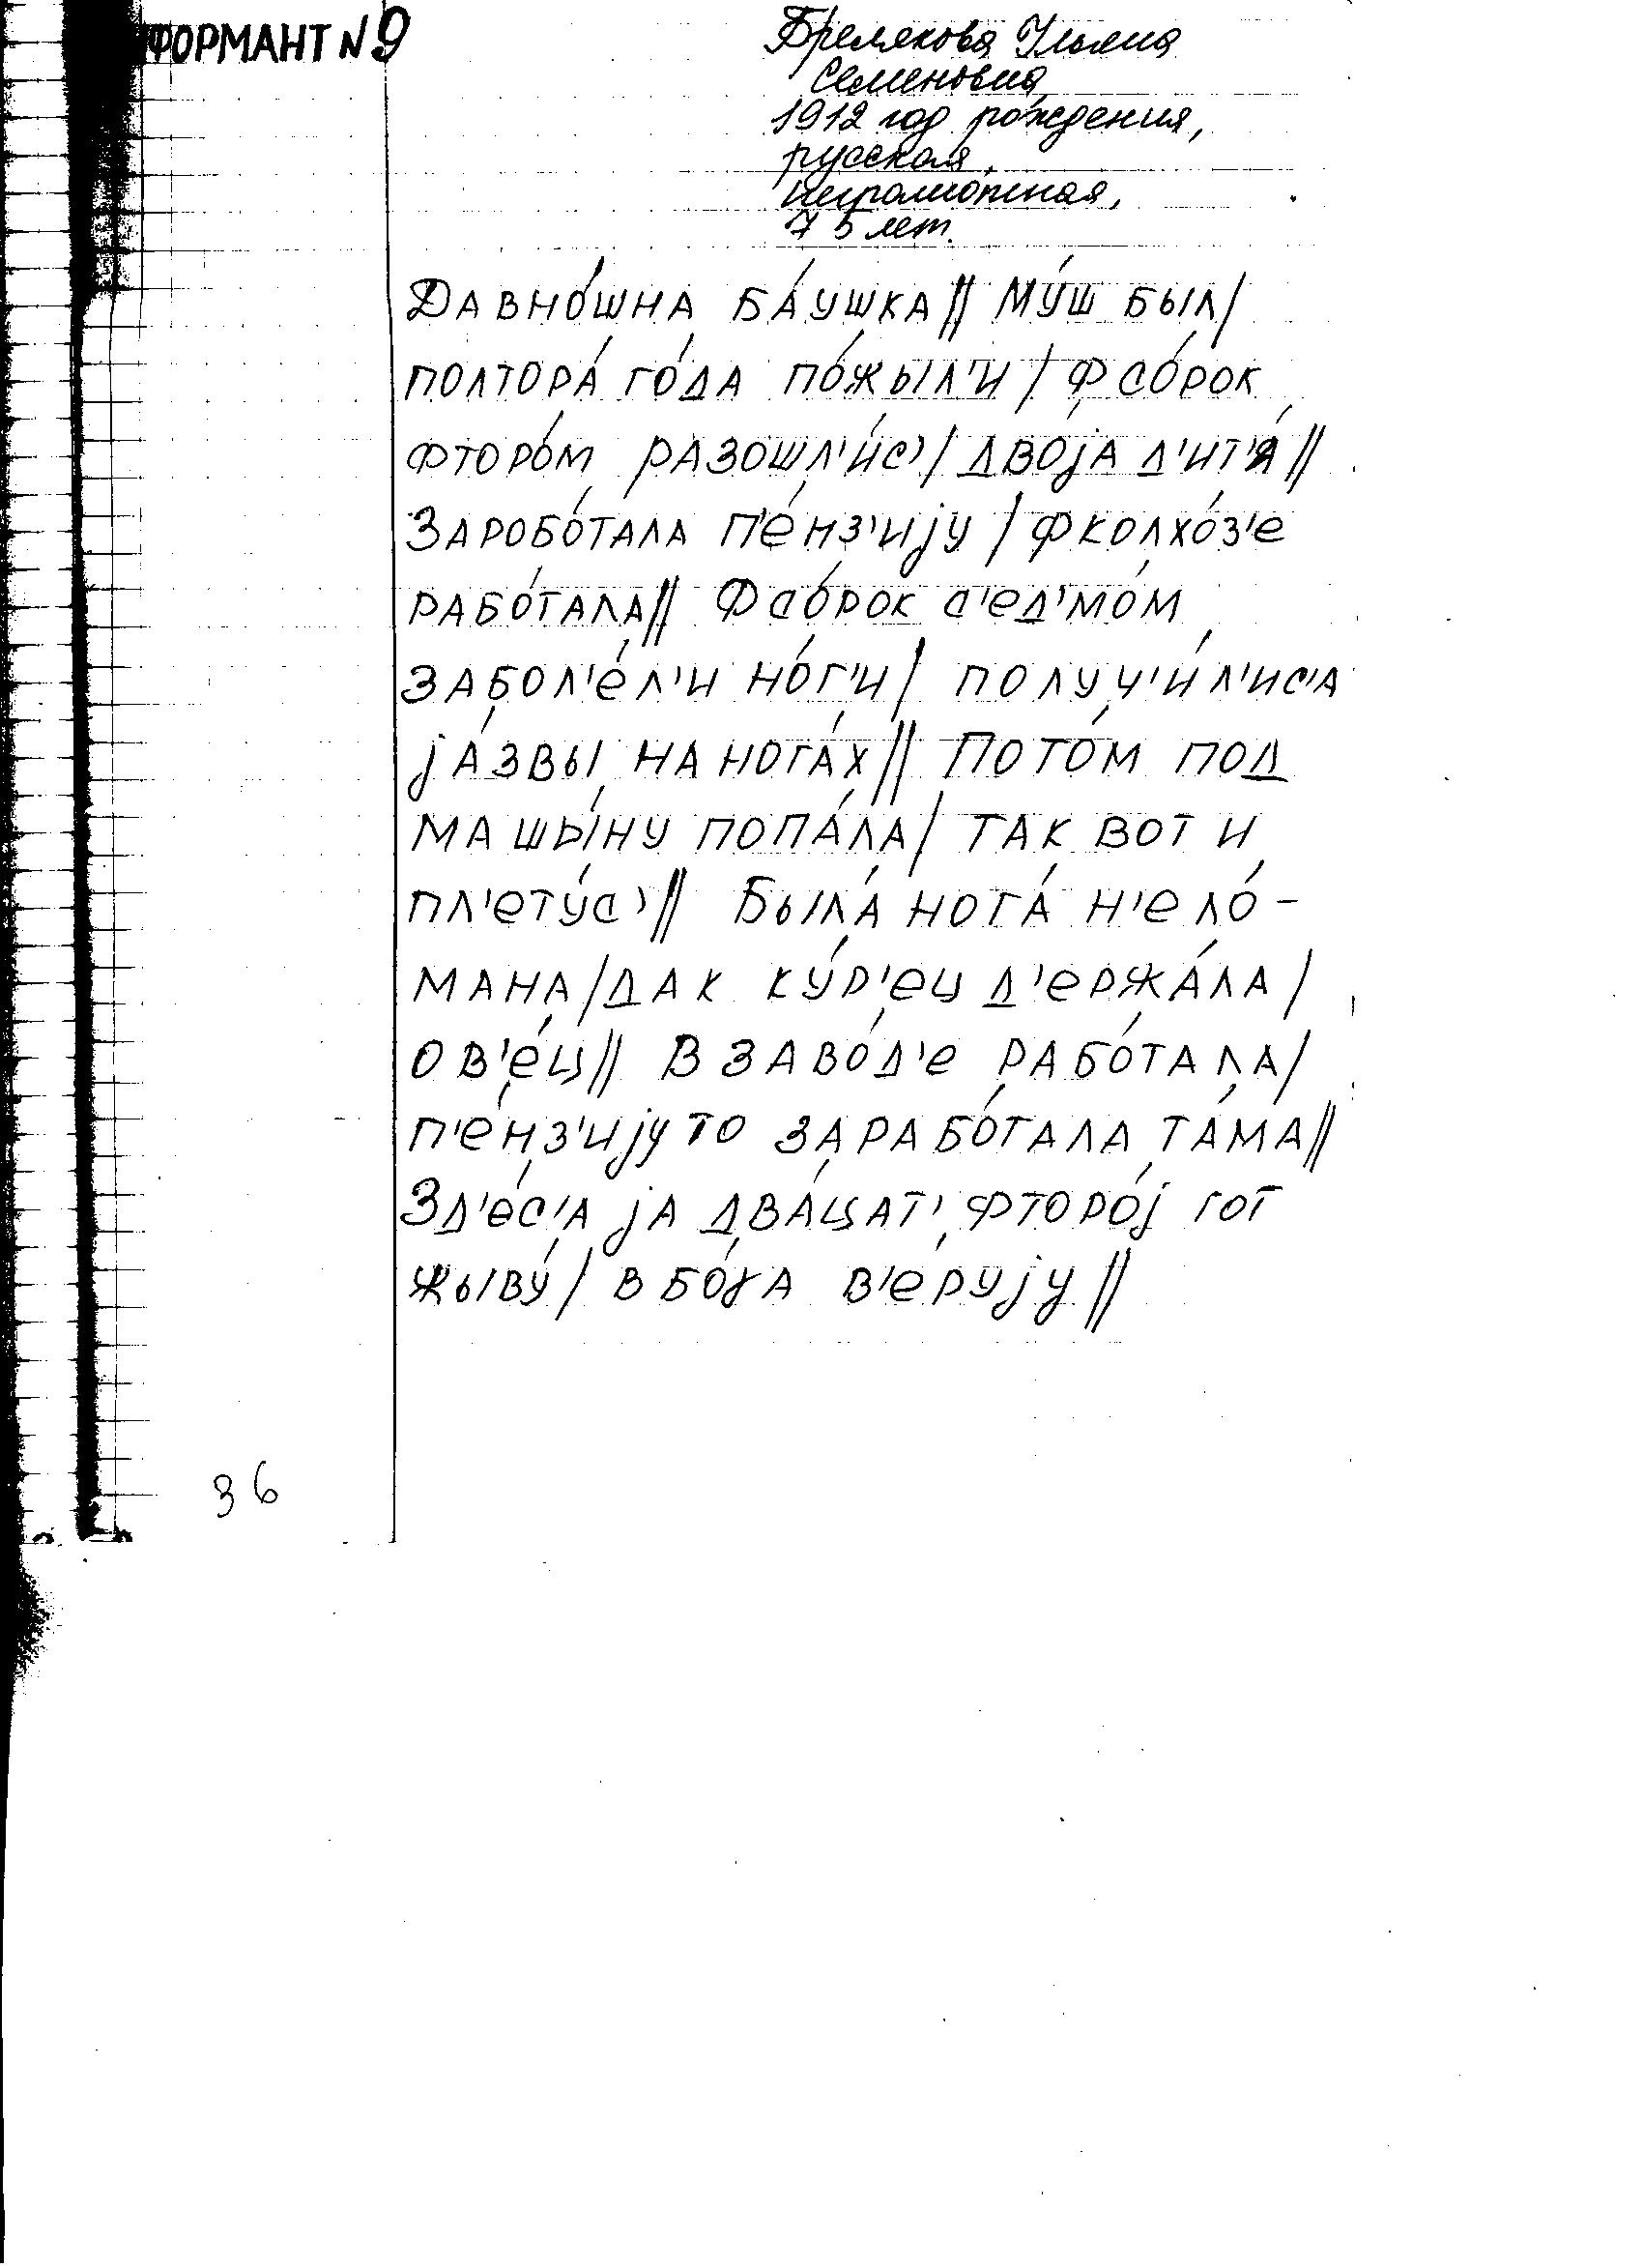 ФОРМАНТ N 9
Бремякова Ульяна
Семеновна,
1912 год рождения,
русская,
неграмотная,
75 лет.
Давно́шна ба́ушка// му́ш был/
полтора́ го́да по́жыл'и / ф со́рок
фторо́м разошл'и́с'/ дво́jа д'ит'а́//
Заробо́тала п'е́нз'иjу / ф колхо́з'е
рабо́тала// Ф со́рок с'ед'мо́м
забол'е́л'и но́г'и/ получ'и́л'ис'а
jа́звы на нога́х// Пото́м под
машы́ну попа́ла/ так вот и
пл'ету́с'// Была́ нога́ н'е ло́-
мана/ дак ку́р'ец д'ержа́ла/
ов'е́ц// В заво́д'е рабо́тала/
п'е́нз'иjу то зарабо́тала та́ма//
Зд'е́с'а jа два́цат' фторо́j гот
жыву́/ в бо́γа в'е́руjу//
36